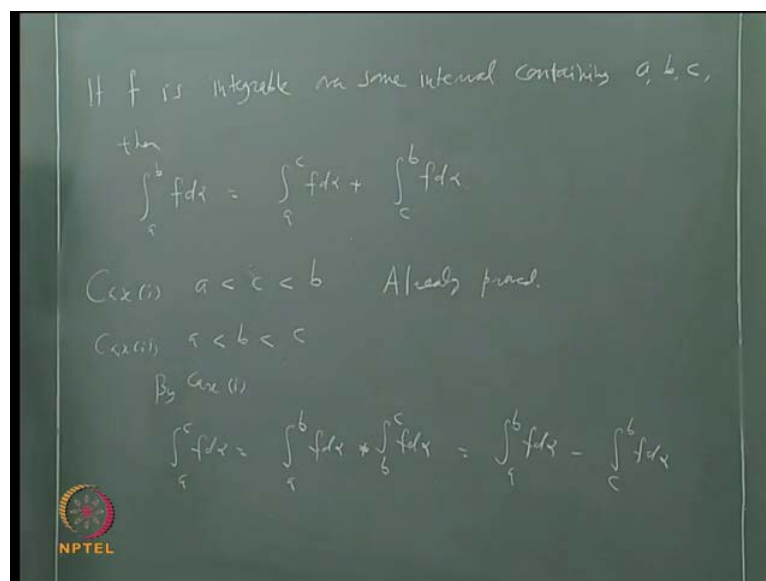 If f is integrable on some interval containing a, b, c,
then
∫_a^b fdα = ∫_a^c fdα + ∫_c^b fdα
Case(i) a < c < b Already proved.
Case(ii) a < b < c
By Case (i)
∫_a^c fdα = ∫_a^b fdα + ∫_b^c fdα = ∫_a^b fdα - ∫_c^b fdα
NPTEL